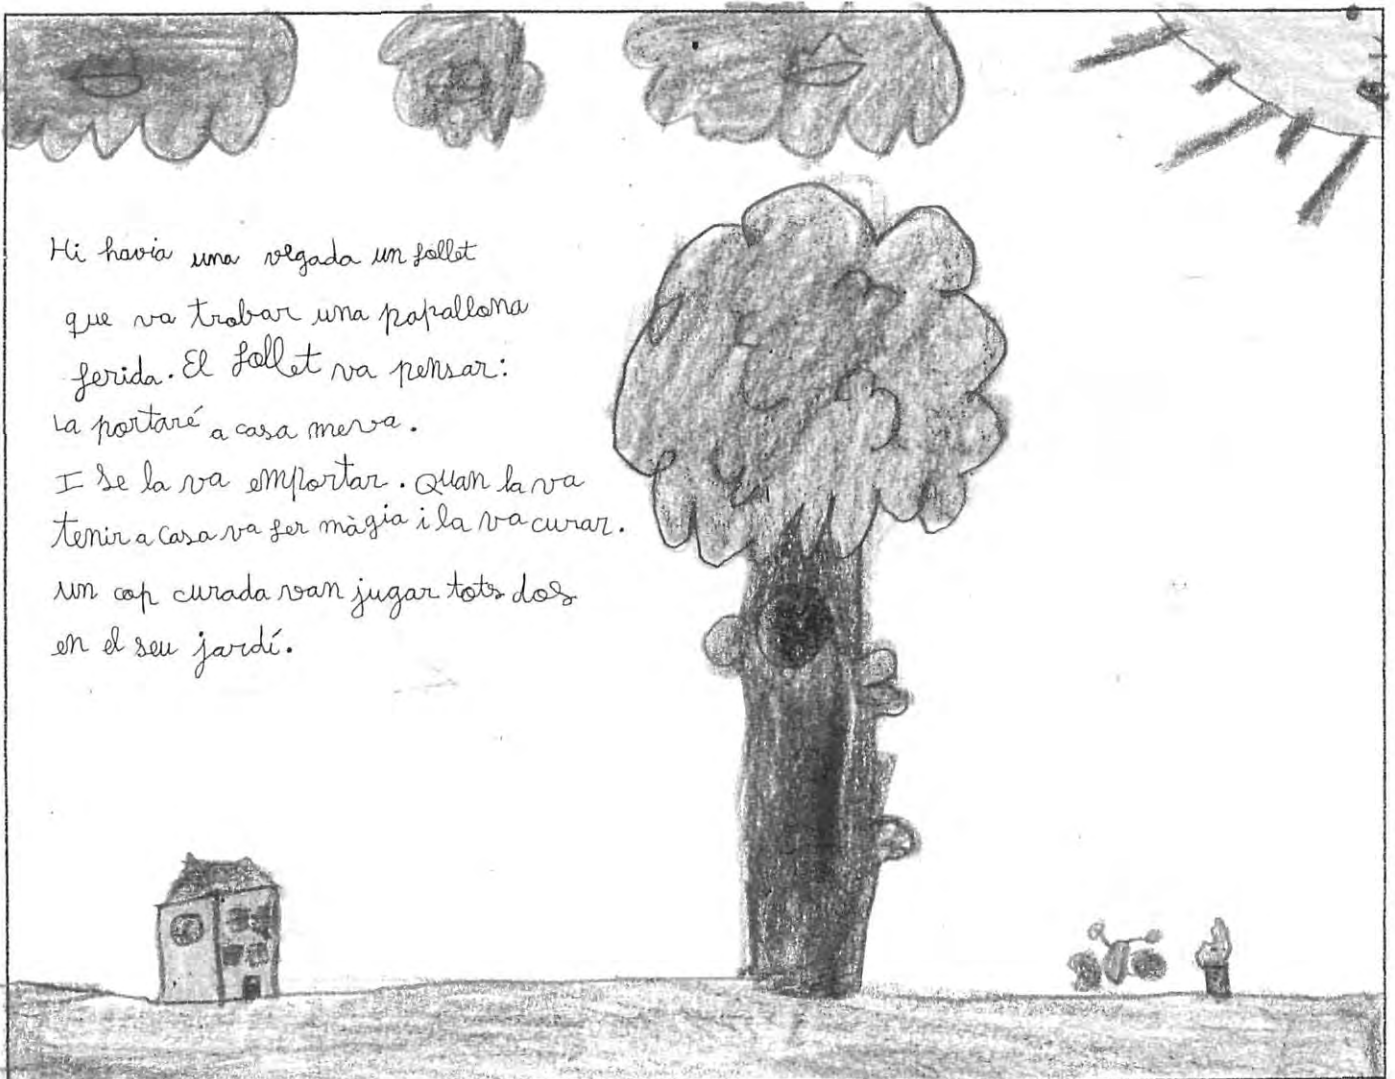 Hi havia una vegada un follet
que va trobar una papallona
ferida. El follet va pensar:
La portaré a casa meva.
I se la va emportar. Quan la va
tenir a casa va fer màgia i la va curar.
un cop curada van jugar tots dos
en el seu jardí.